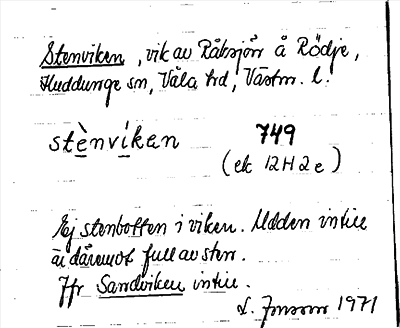 Stenviken, vik av Råksjön å Rödje,
Huddunge sn, Våla hd, Västm. l.
stènvíkan 749
(ek 12H2e)
Ej stenbotten i viken. Udden intill
är däremot full av sten.
Jfr Sandviken intill.
L. Jonsson 1971